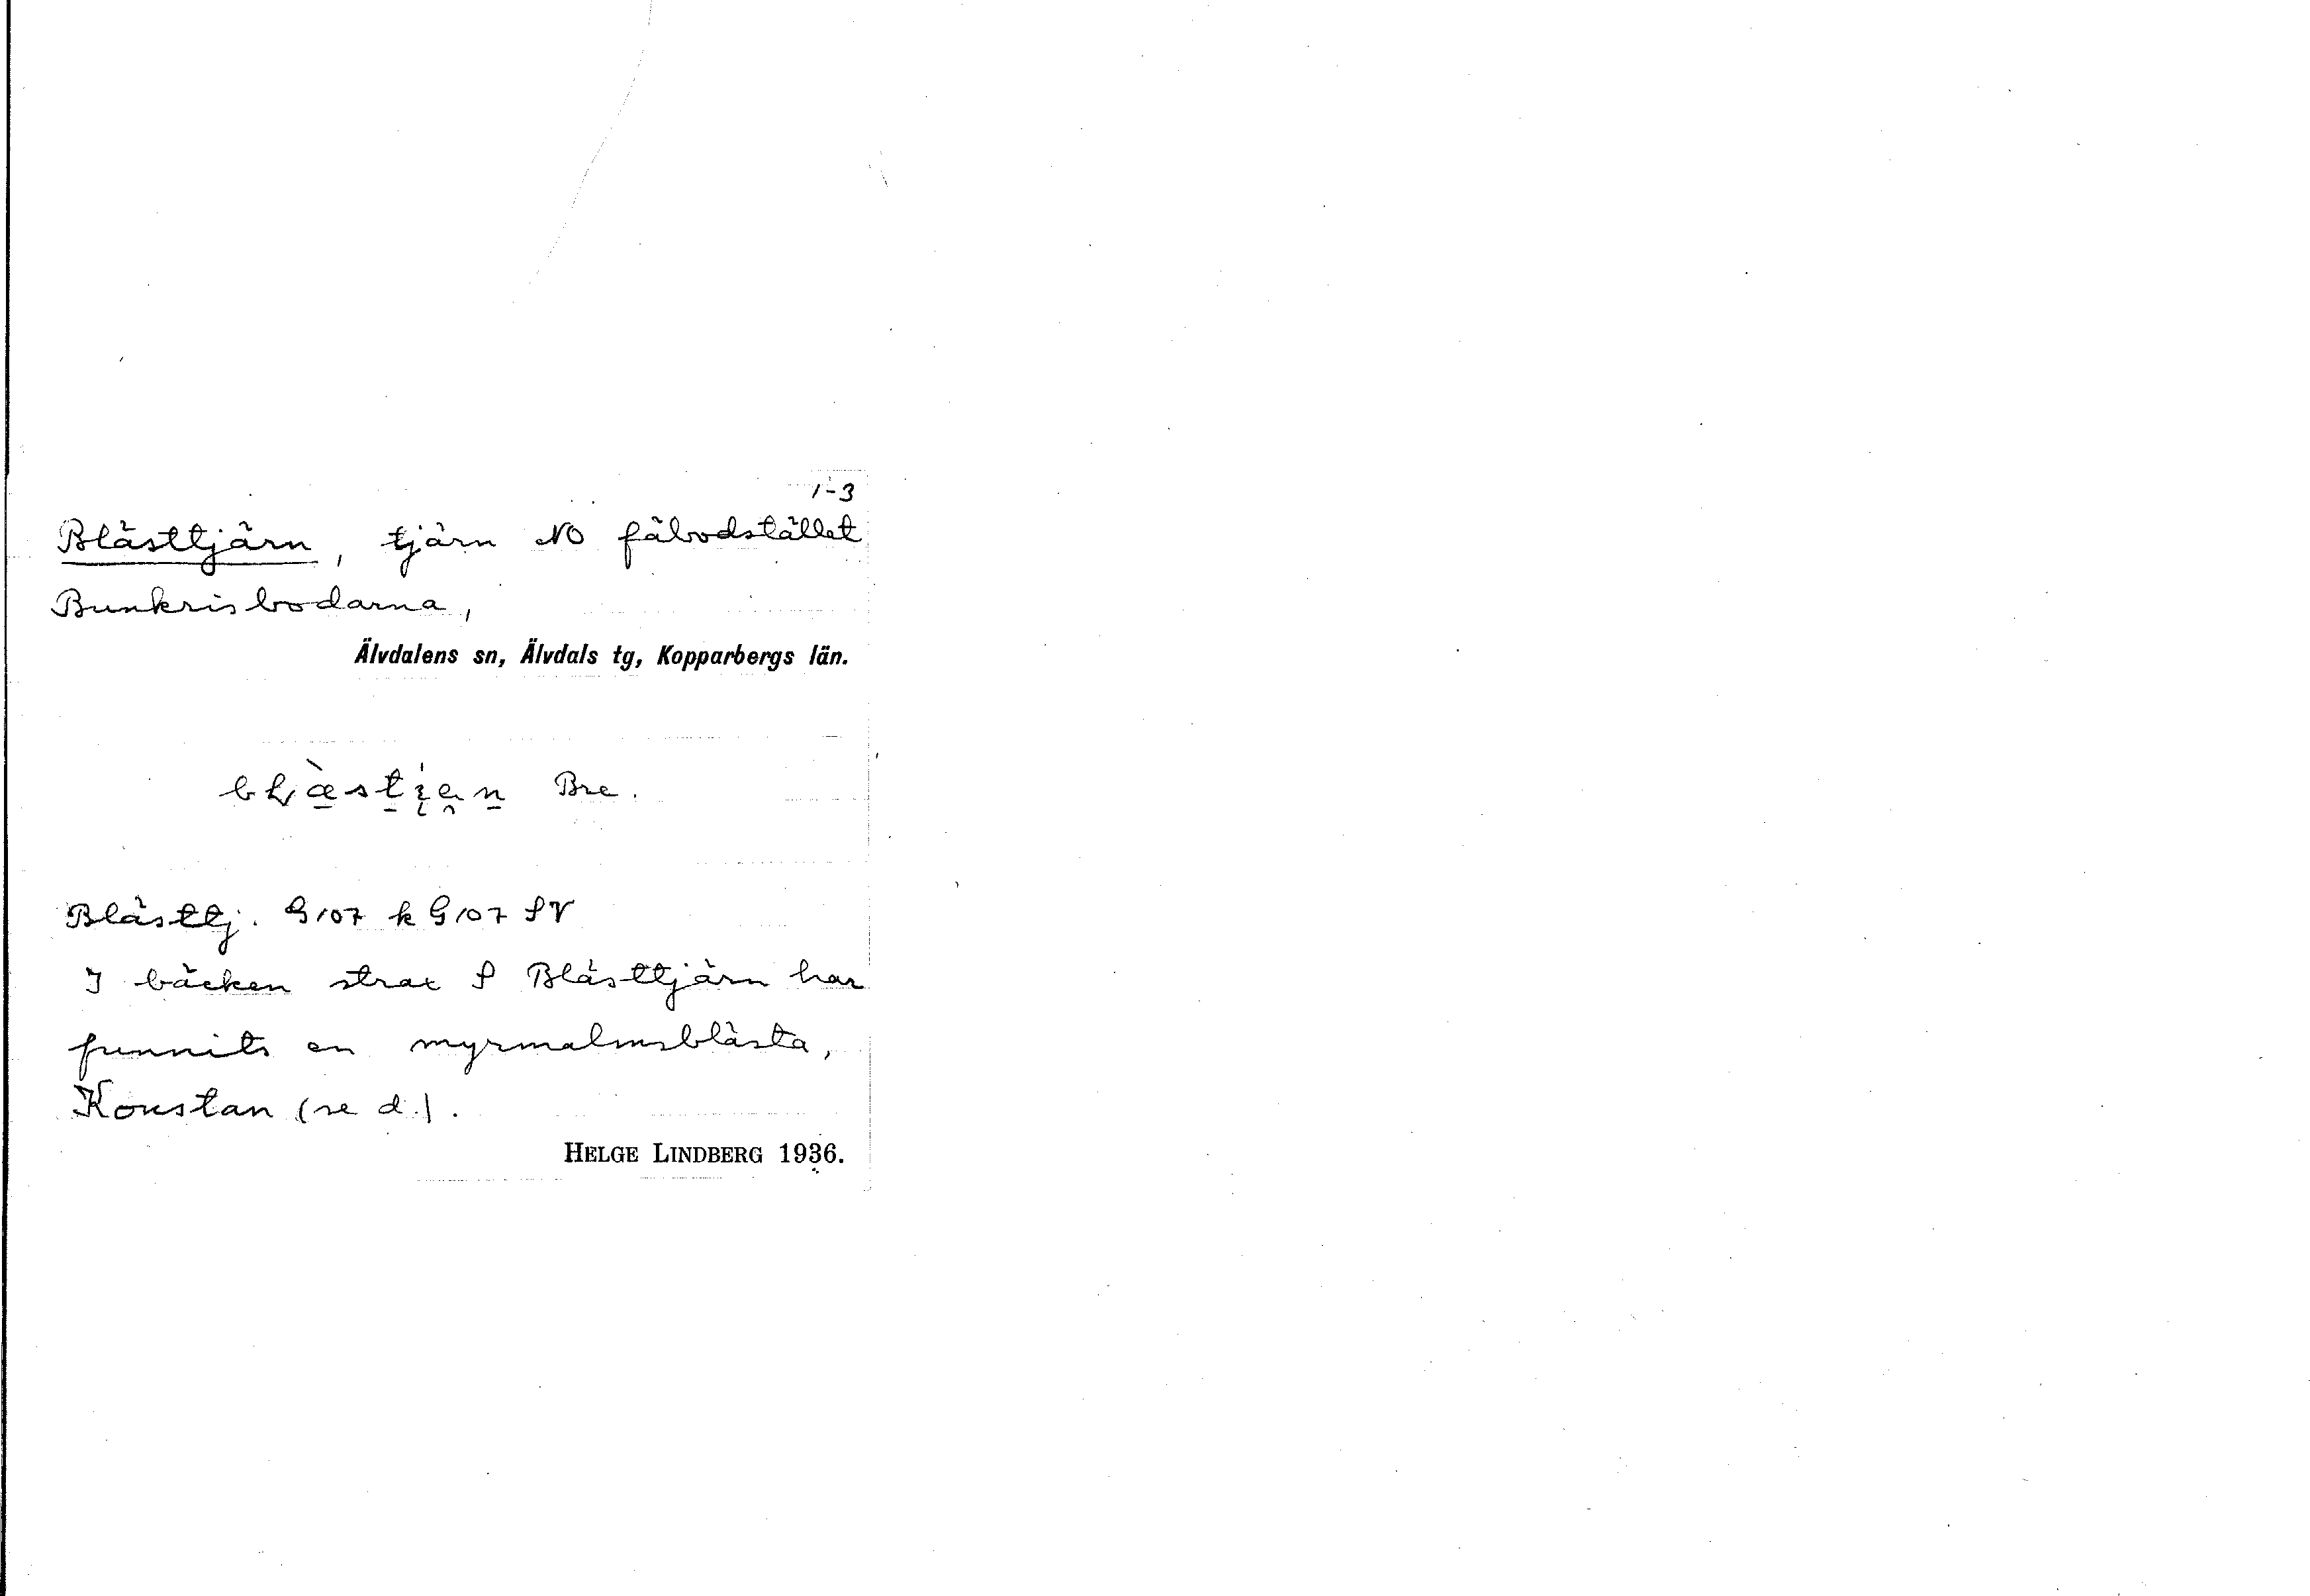 1-3
Blästtjärn, tjärn NO fäbodstället
Bunkrisbodarna,
Älvdalens sn, Älvdals tg, Kopparbergs län.
Bre.
Blästtj. G107 k G107 SV
I bäcken strax S Blästtjärn har
funnits en myrmalmsblästa,
Konstan (se d.).
HELGE LINDBERG 1936.